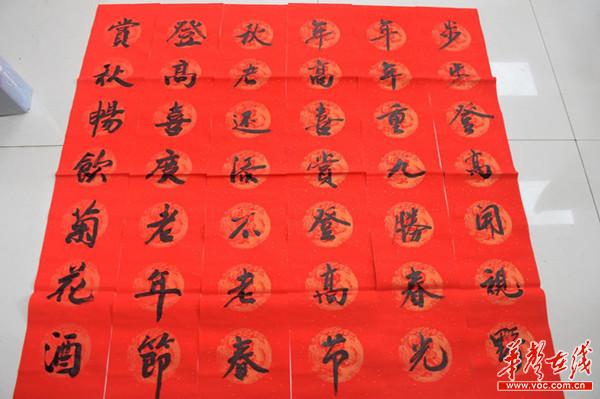 步步登高開視野
年年重九勝春光
年高喜賞登高节
秋老还添不老春
登高喜度老年節
賞秋暢飲菊花酒
華聲在线
www.voc.com.cn